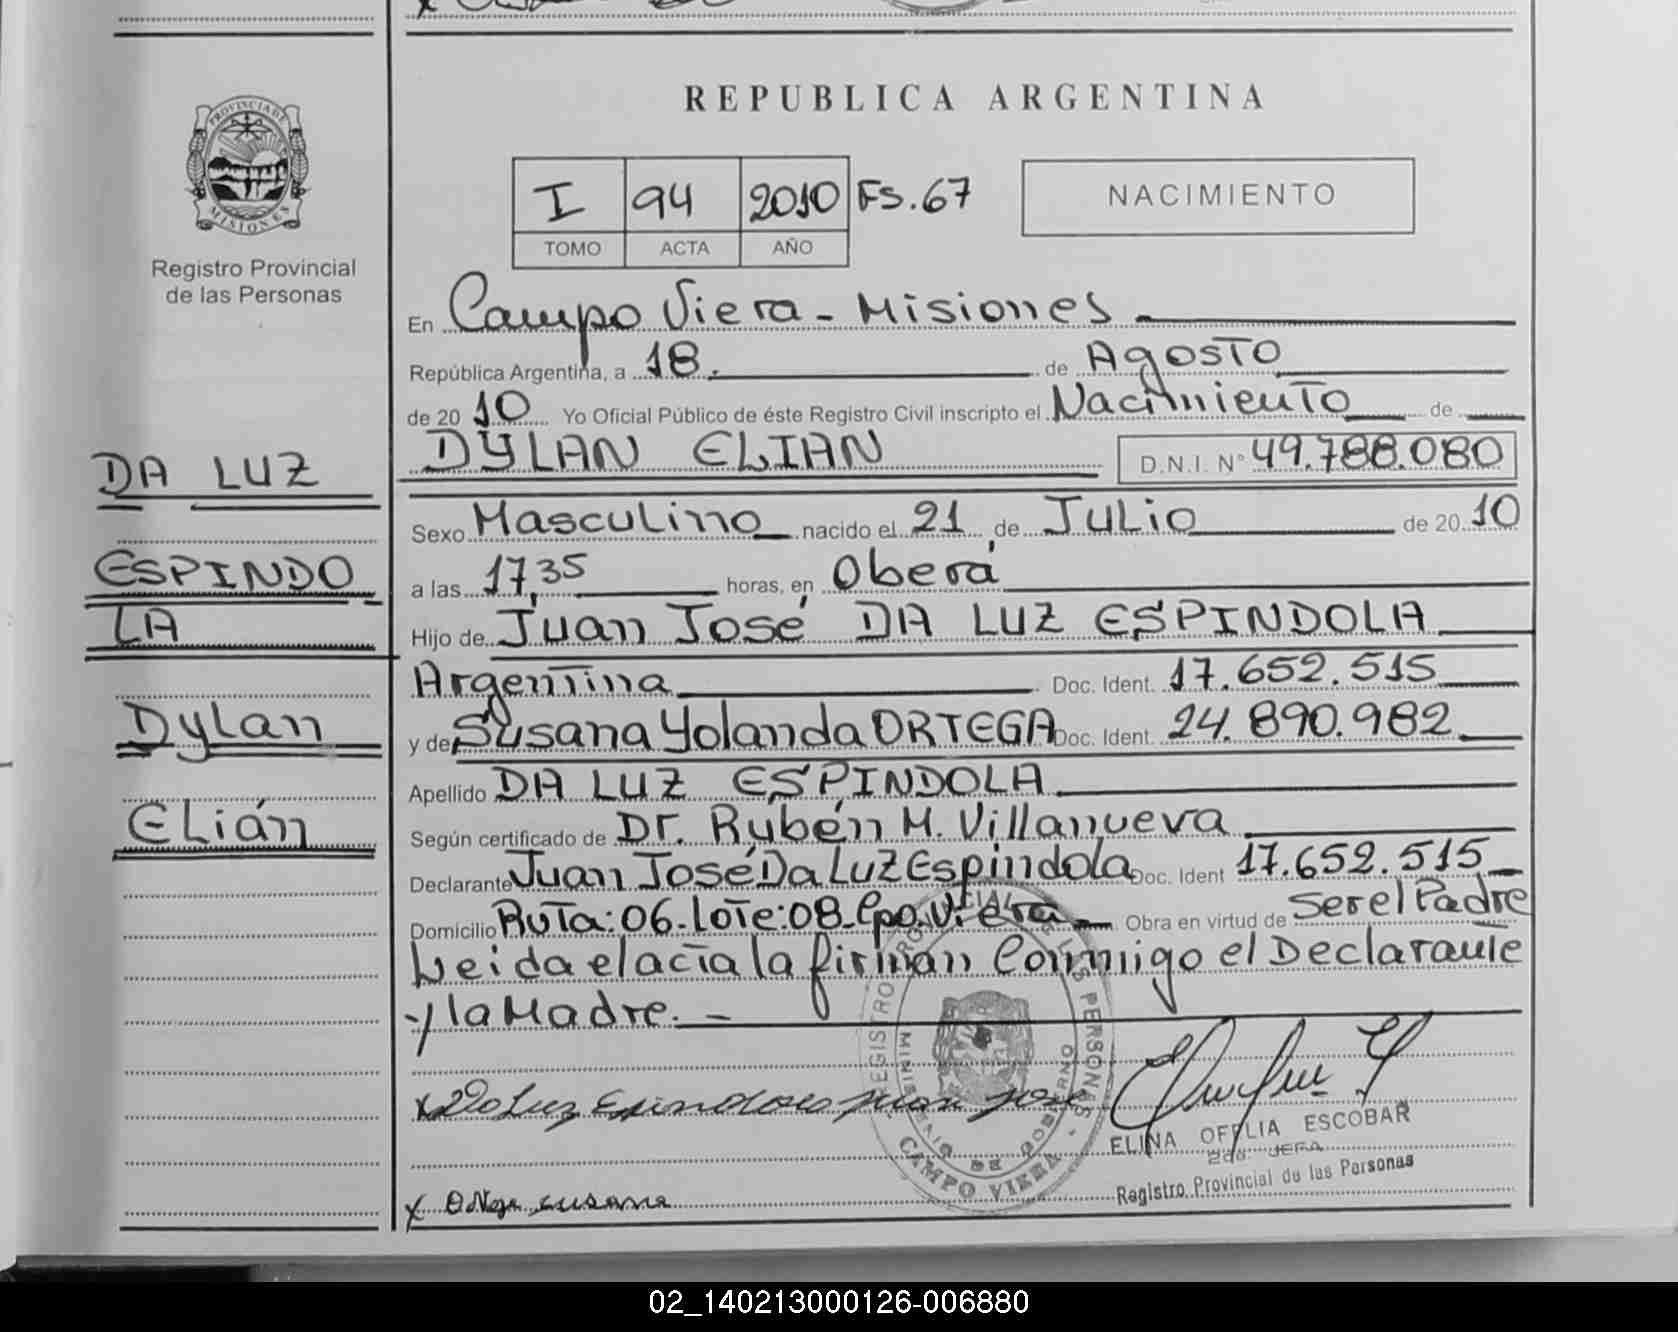 REPUBLICA ARGENTINA
PROVINCIA DE MISIONES
Registro Provincial
de las Personas
I 94 2010 Fs. 67
TOMO ACTA AÑO
NACIMIENTO
En Campo Viera - Misiones
República Argentina, a 18. de Agosto
de 20 10 Yo Oficial Público de éste Registro Civil inscripto el Nacimiento de
DYLAN ELIAN D.N.I. N° 49.788.080
Sexo Masculino nacido el 21 de Julio de 20 10
a las 17,35 horas, en Oberá
Hijo de Juan José DA LUZ ESPINDOLA
Argentina Doc. Ident. 17.652.515
y de Susana Yolanda ORTEGA Doc. Ident. 24.890.982
Apellido DA LUZ ESPINDOLA
Según certificado de Dr. Rubén M. Villanueva
Declarante Juan José Da Luz Espindola Doc. Ident 17.652.515
Domicilio Ruta: 06 - Lote: 08 - Cpo. Viera Obra en virtud de Ser el Padre
Leida el acta la firman Conmigo el Declarante
y la Madre. -
DA LUZ
ESPINDO
LA
Dylan
Elián
x Da Luz Espindola Juan Jose
x Ortega susana
REGISTRO PROVINCIAL DE LAS PERSONAS
MINISTERIO DE GOBIERNO
CAMPO VIERA
ELINA OFELIA ESCOBAR
2da. JEFA
Registro Provincial de las Personas
02_140213000126-006880